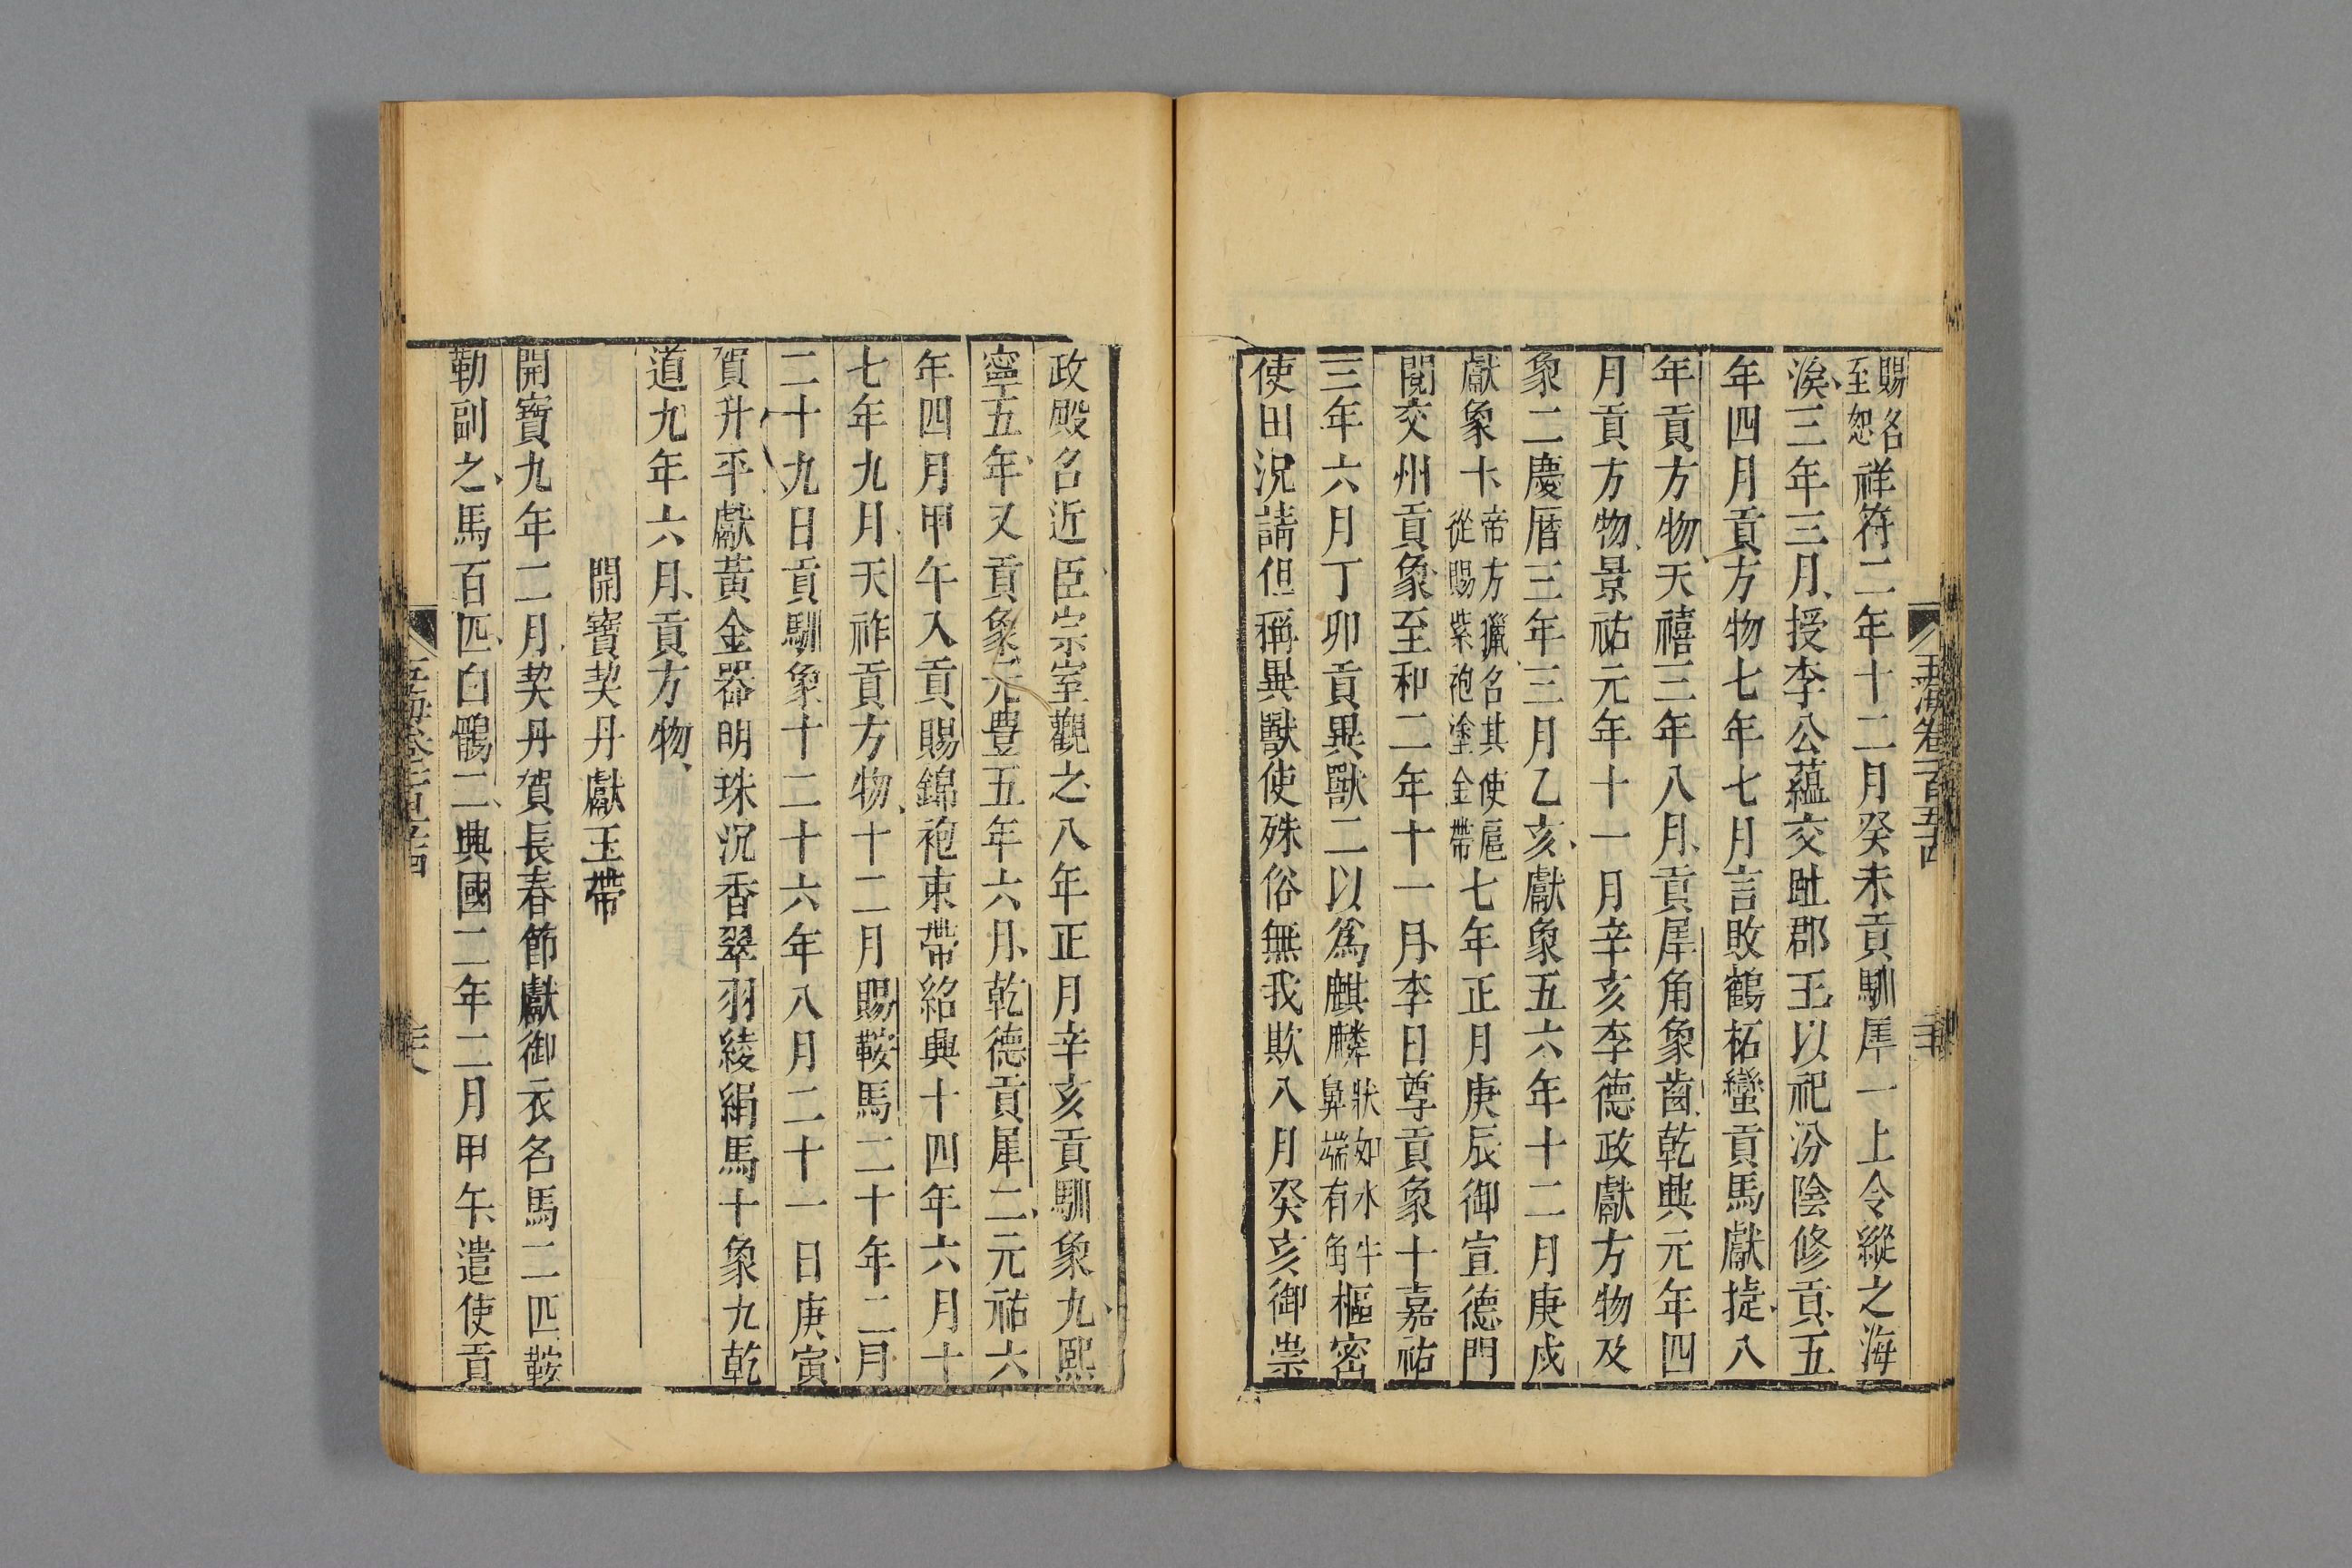 賜名至恕祥符二年十二月癸未貢馴犀一上令縱之海
涘三年三月授李公蘊交趾郡王以祀汾陰修貢五
年四月貢方物七年七月言敗鶴柘蠻貢馬獻捷八
年貢方物天禧三年八月貢犀角象齒乾興元年四
月貢方物景祐元年十一月辛亥李德政獻方物及
象二慶曆三年三月乙亥獻象五六年十二月庚戌
獻象十帝方獵名其使扈從賜紫袍塗金帶七年正月庚辰御宣德門
閱交州貢象至和二年十一月李日尊貢象十嘉祐
三年六月丁卯貢異獸二以為麒麟狀如水牛鼻端有角樞密
使田況請但稱異獸使殊俗無我欺八月癸亥御崇
政殿名近臣宗室觀之八年正月辛亥貢馴象九熙
寧五年又貢象元豊五年六月乾德貢犀二元祐六
年四月甲午入貢賜錦袍束帶紹興十四年六月十
七年九月天祚貢方物十二月賜鞍馬二十年二月
二十九日貢馴象十二十六年八月二十一日庚寅
賀升平獻黃金器明珠沉香翠羽綾絹馬十象九乾
道九年六月貢方物
開寶契丹獻玉帶
開寶九年二月契丹賀長春節獻御衣名馬二匹鞍
勒副之馬百匹白鶻二興國二年二月甲午遣使貢